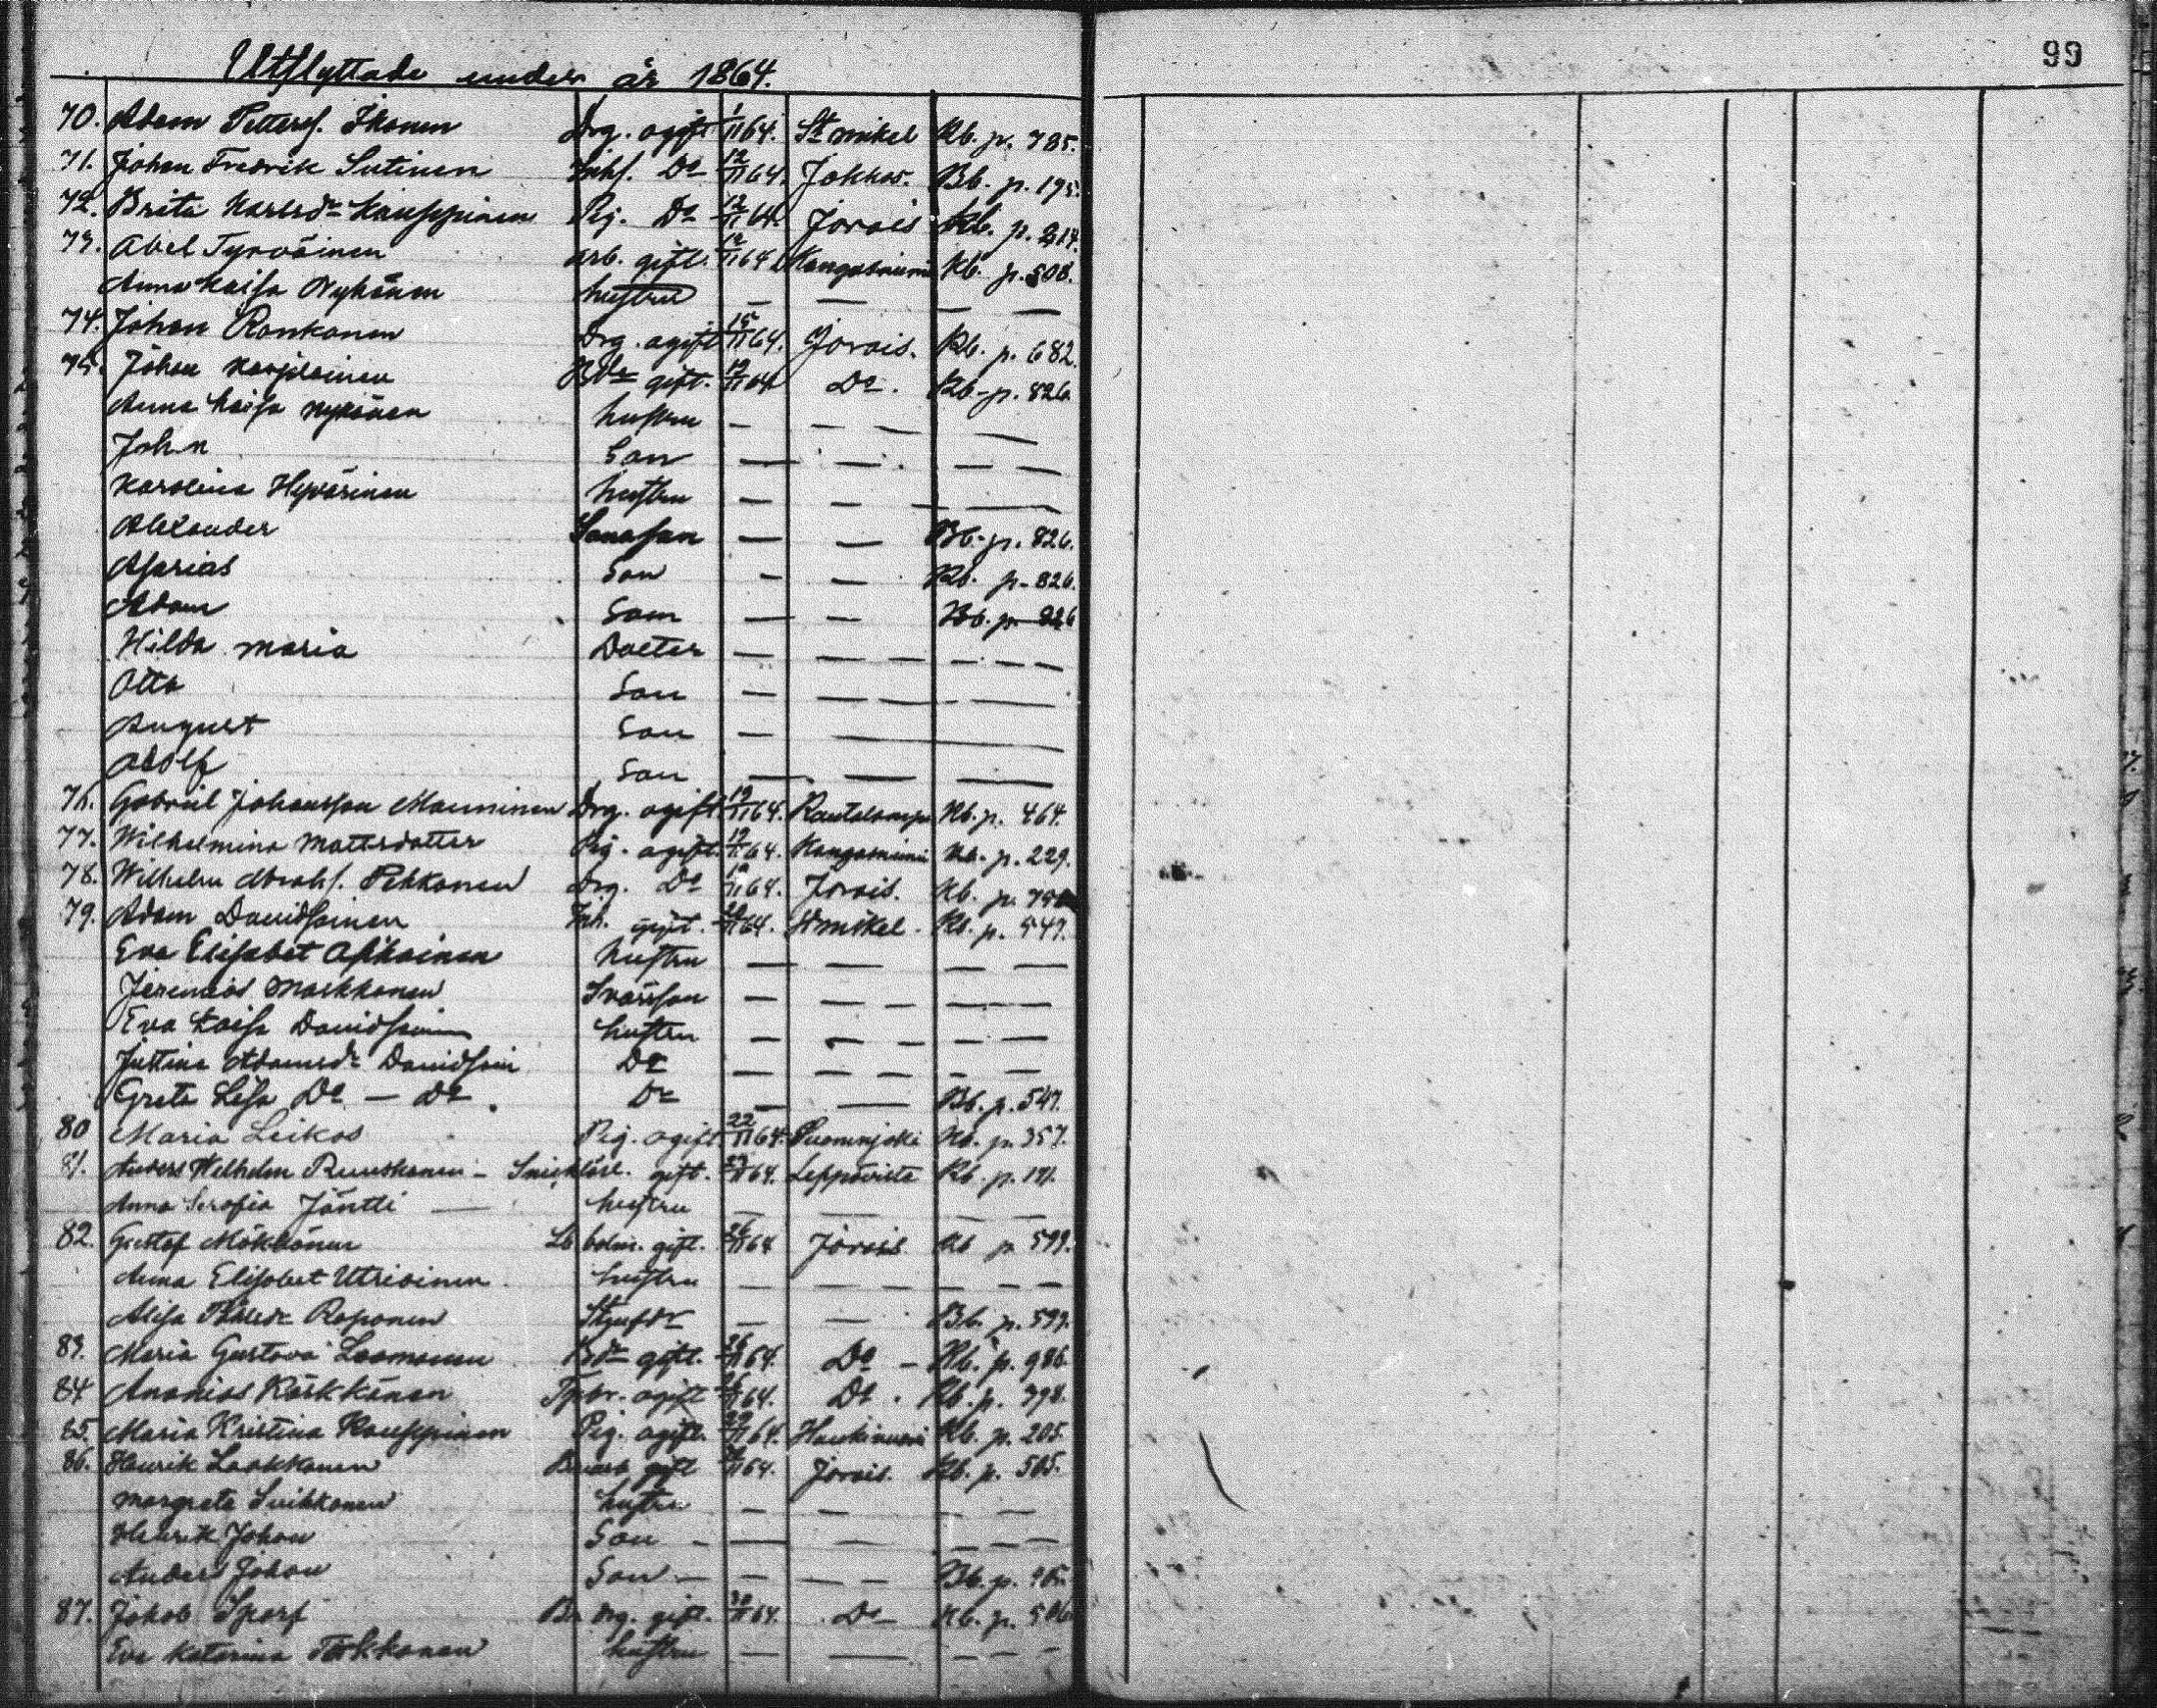 99
Utflyttade under år 1864.
70. Adam Petterss. Ikonen Drg. ogift 1/11 64. St mikel Kb. p. 785.
71. Johan Fredrik Sutinen Inhs. Do 12/11 64. Jokkas. Bb. p. 195.
72. Brita Karlsdr Kauppinen Pig. Do 12/11 64. Jorois Kb. p. 214.
73. Abel Tyrväinen arb. gift. 12/11 64 Kangasniemi Kb. p. 508.
Anna Kaisa Nykänen hustru — — — —
74. Johan Ronkanen Drg. ogift 15/11 64. Jorois. Kb. p. 682.
75. Johan Karjalainen gift. 19/11 64 Do. Kb. p. 826.
Anna Kaisa Nykänen hustru — — — —
Johan Son — — — —
Karolina Hyvärinen hustru — — — —
Alexander Sonason — — Bb. p. 826.
Asarias Son — — Kb. p. 826.
Adam Son — — Bb. p. 826
Hilda Maria Dotter — — — — — —
Otto Son — — — — —
August Son — — —
Adolf Son — — —
76. Gabriel Johansson Manninen Drg. ogift. 19/11 64. Rautalampi Kb. p. 464.
77. Wilhelmina Mattsdotter Pig. ogift. 19/11 64. Kangasniemi Kb. p. 229.
78. Wilhelm Abrahs. Pekkanen Drg. Do 19/11 64. Jorois. Kb. p.
79. Adam Davidsainen Inh. gift. 64. St mikel. Kb. p. 547.
Eva Elisabet Asikainen hustru — — — —
Jeremias Markkanen Svärson — — — — —
Eva Kaisa Davidsain hustru — — — — —
Justina Adamsdr Davidsain Dr — — — — —
Greta Lisa Do — Do. Dr — — Bb. p. 547.
80 Maria Leikas Pig. ogift 22/11 64. Suonenjoki Kb. p. 357.
81. Anders Wilhelm Ruuskanen — gift. 64. Leppävirta Kb. p. 171.
Anna Serafia Jäntti — hustru — — — —
82. Gustaf Mökkönen gift. 26/11 64 Jorois Kb p 599.
Anna Elisabet Utriainen hustru — — — — —
Påhlsdr Roponen Styfdr — — Bb. p. 599.
83. Maria Gustava Laamanen gift. 26/11 64. Do — Kb. p. 986.
84 Ananias Kärkkänen ogift 26/11 64. Do. Kb. p. 798.
85. Maria Kristina Kauppinen Pig. ogift. 29/11 64. Haukivuori Kb. p. 205.
86. Henrik Laakkonen gift 64. Jorois. Kb. p. 505.
Margreta Suikkanen hustru — — — —
Henrik Johan Son — — — — — —
Anders Johan Son — — — — Bb. p.
87. Jakob Sparf drg. gift. 30/11 64. Do — Kb. p. 506
Eva Katarina hustru — — — — —